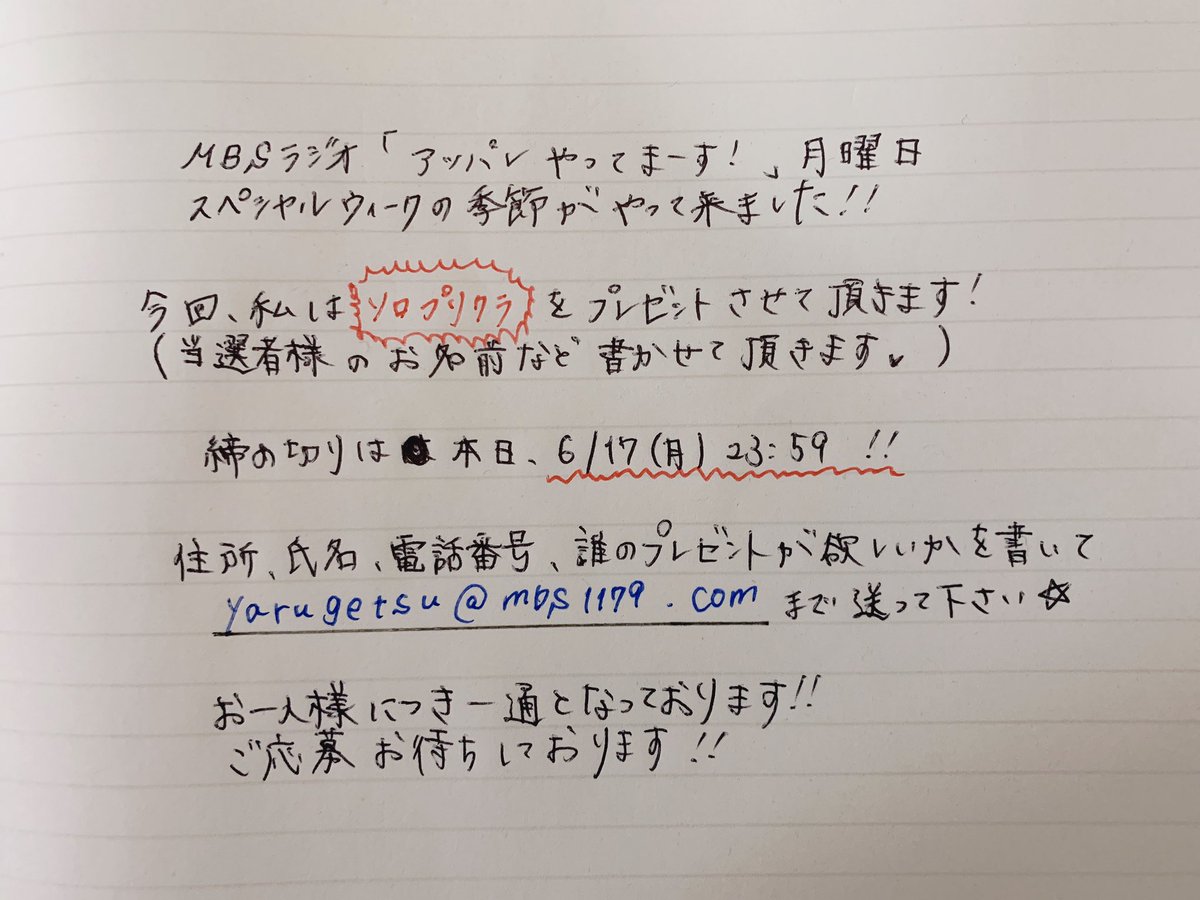 MBSラジオ「アッパレやってまーす!」月曜日
スペシャルウィークの季節がやって来ました!!
今回、私はソロプリクラをプレゼントさせて頂きます!
(当選者様のお名前など書かせて頂きます♥)
締め切りは本日、6/17(月)23:59 !!
住所、氏名、電話番号、誰のプレゼントが欲しいかを書いて
yarugetsu@mbs1179.comまで送って下さい☆
お一人様につき一通となっております!!
ご応募お待ちしております!!